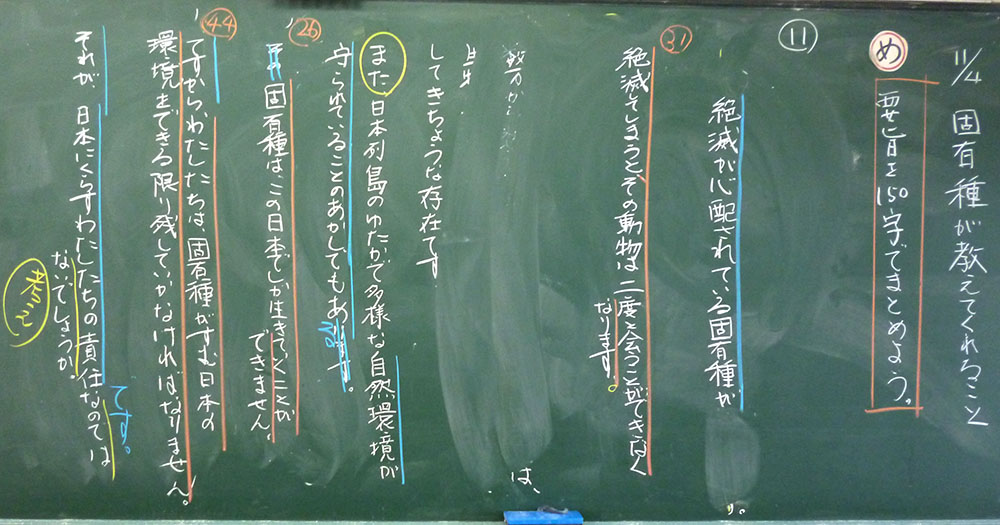 11/4 固有種が教えてくれること
め
要旨を150字でまとめよう。
⑪
絶滅が心配されている固有種が
。
㉛
絶滅してしまうと、その動物は二度と会うことができなく
なります。
は、
してきちょうな存在です
また日本列島のゆたかで多様な自然環境が
守られていることのあかしでもあります。
る。
㉖
その固有種は、この日本でしか生きていくことが
できません。
㊹
ですから、わたしたちは、固有種がすむ日本の
環境をできる限り残していかなければなりません。
それが、日本にくらすわたしたちの責任なのでは
ないでしょうか。
です。
考え